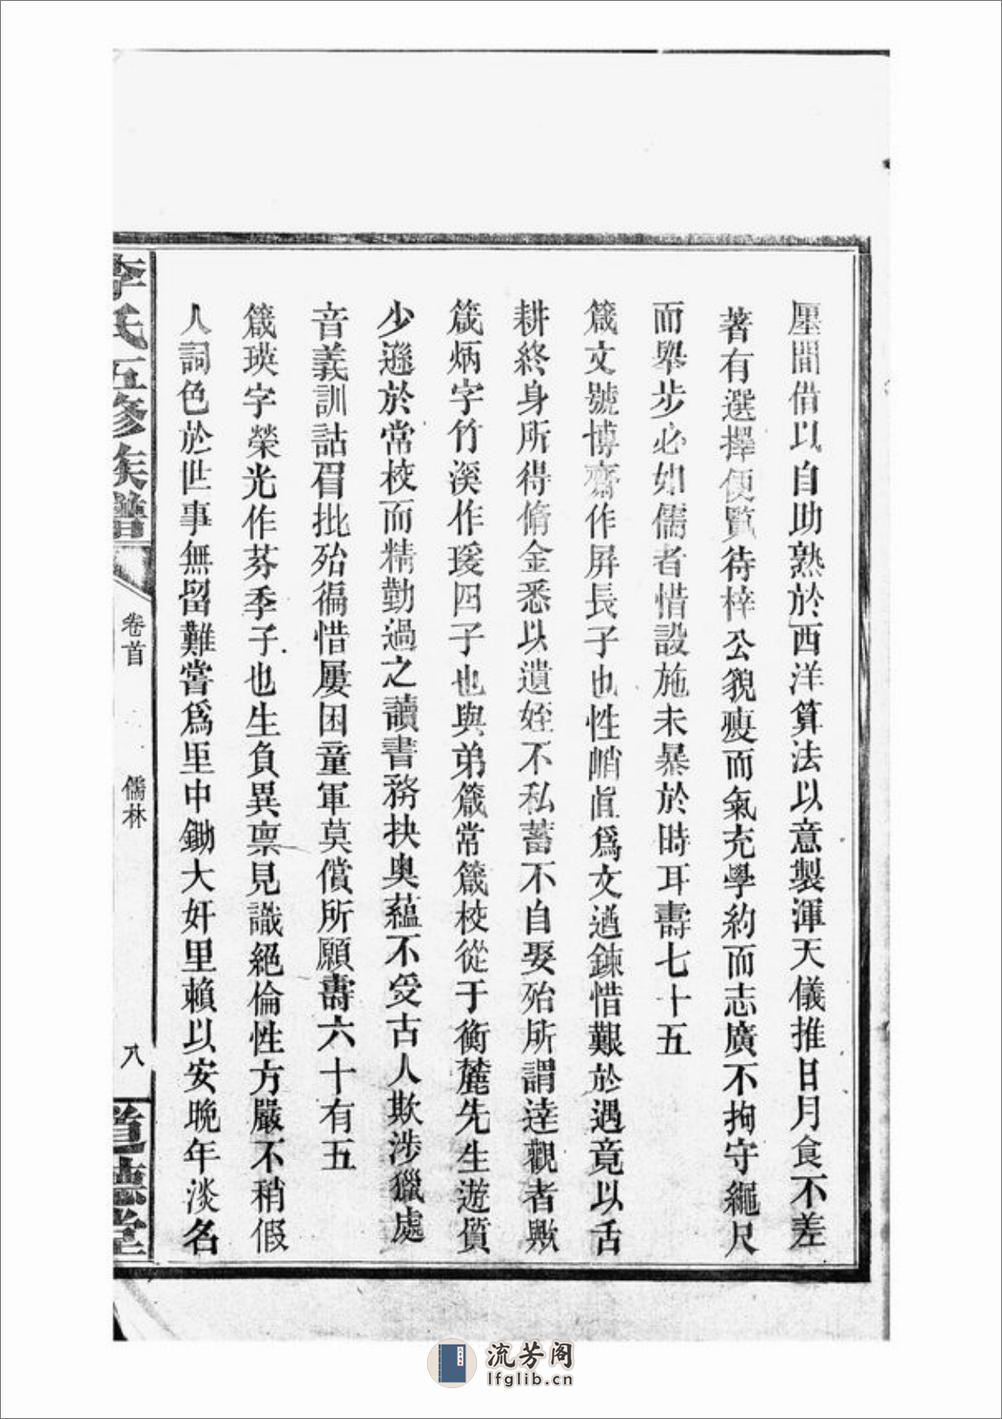 廛間借以自助熟於西洋算法以意製渾天儀推日月食不差
著有選擇便覽待梓公貌瘦而氣充學約而志廣不拘守繩尺
而舉步必如儒者惜設施未暴於時耳壽七十五
箴文號博齋作屏長子也性峭直為文遒鍊惜艱於遇竟以舌
耕終身所得脩金悉以遺姪不私蓄不自娶殆所謂達觀者歟
箴炳字竹溪作瑗四子也與弟箴常箴校從于衡麓先生遊質
少遜於常校而精勤過之讀書務抉奧蘊不受古人欺涉獵處
音義訓詁眉批殆徧惜屢困童軍莫償所願壽六十有五
箴瑛字榮光作芬季子也生負異禀見識絕倫性方嚴不稍假
人詞色於世事無留難嘗為里中鋤大奸里賴以安晚年淡名
李氏五修族譜
卷首
儒林
八
道德堂
流芳阁
lfglib.cn